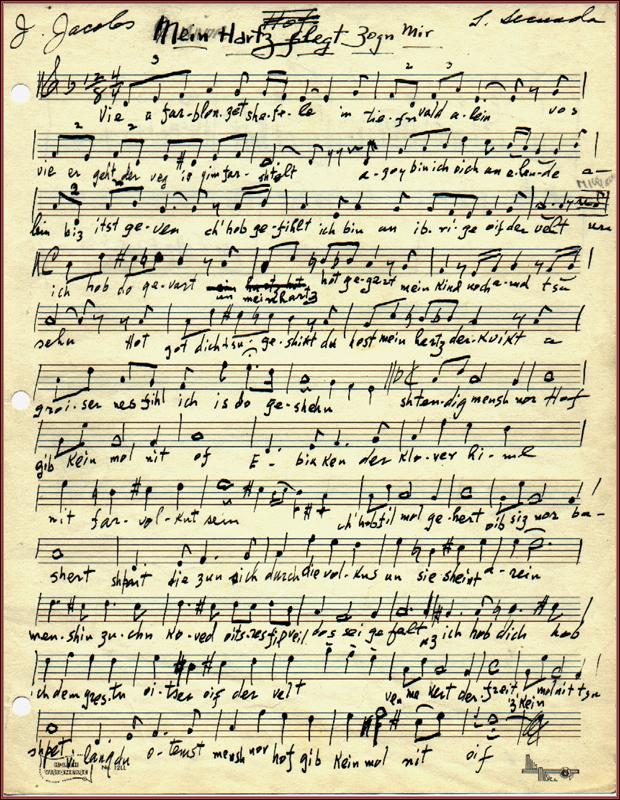 J. Jacobs Mein Hartz flegt zogn Mir S. Secunda
Vie a far-blon-zet she-fe-le im tie-fn vald a-lein vos
vie er geht der veg is gim far-shtelt a-zoy bin ich oich an e-len-de a-
lein biz itst ge-ven ch'hob ge-fihlt ich bin an ib-ri-ge oif der velt un
ich hob do ge-vart un mein hartz hot ge-gart mein kind noch a-mol tsu
sehn Hot got dich tsu-ge-shikt du host mein hertz der-kvikt a
groi-ser nes fihl ich is do ge-shehn shten-dig mensh nor Hof
gib kein mol nit of E-bin ken der klo-ver hi-mel
mit far-vol-knt sein ch'hob fil mol ge-hert oib s'iz nor ba-
shert shpart die zun sich durch die vol-kns un sie sheint a-rein
men-shin zu-chn ko-ved oits-res fil veil dos sei ge-falt az ich hob dich hob
ich dem gres-tn oi-tser oif der velt ven me vert der-freit, mol nit tsu
shpet lang du o-temst mensh nor hof gib kein mol nit oif